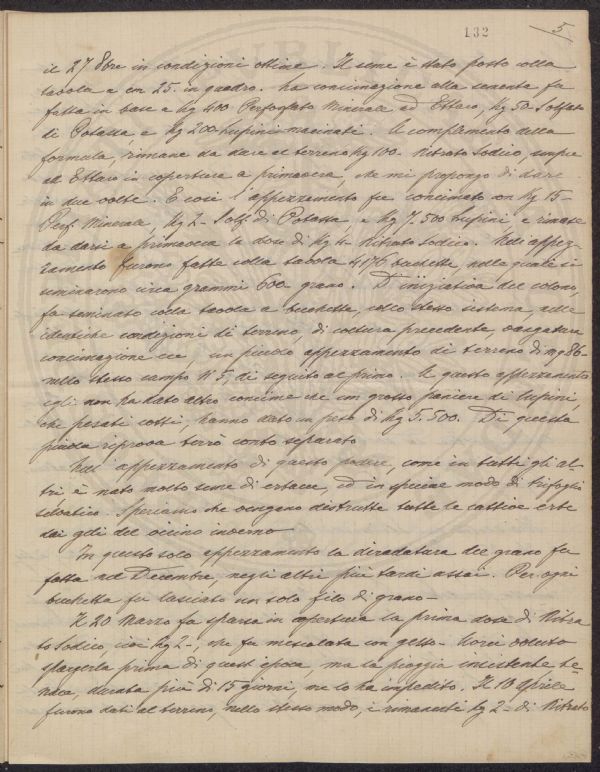 132
5
il 27 8bre in condizioni ottime. Il seme è stato posto colla
tavola a cm 25. in quadro. La concimazione alla sementa fu
fatta in base a Kg 400 Perfosfato Minerale ad Ettaro, Kg 50 Solfato
di Potassa, e Kg 200 Lupini macinati. A complemento della
formula, rimane da dare al terreno Kg 100 Nitrato Sodico, sempre
ad Ettaro in copertura a primavera, che mi propongo di dare
in due volte. E così l'appezzamento fu concimato con Kg 15-
Perf. Minerale, Kg 2- Solf. di Potassa, e Kg 7.500 Lupini e rimase
da darsi a primavera la dose di Kg 4 Nitrato Sodico. Nell'appez-
zamento furono fatte colla tavola 4176 buchette, nelle quali si
seminarono circa grammi 600 grano. D'iniziativa del colono,
fu seminato colla tavola a buchette, collo stesso sistema, alle
identiche condizioni di terreno, di coltura precedente, vangatura
concimazione ecc, un piccolo appezzamento di terreno di mq 86-
nello stesso campo N 5, di seguito al primo. A questo appezzamento
egli non ha dato altro concime che un grosso paniere di lupini,
che pesati cotti, hanno dato un peso di Kg 5.500. Di questa
piccola riprova terrò conto separato
Nell'appezzamento di questo podere, come in tutti gli al-
tri, è nato molto seme di erbacce, ed in specie modo di trifoglio
selvatico. Speriamo che vengano distrutte tutte le cattive erbe
dai geli del vicino inverno
In questo solo appezzamento la diradatura del grano fu
fatta nel Decembre, negli altri più tardi assai. Per ogni
buchetta fu lasciato un solo filo di grano-
Il 20 Marzo fu sparsa in copertura la prima dose di Nitra
to Sodico, cioè Kg 2-, che fu mescolata con gesso- Avrei voluto
spargerla prima di quest'epoca, ma la pioggia insistente te-
nace, durata più di 15 giorni, me lo ha impedito. Il 10 Aprile
furono dati al terreno, nello stesso modo, i rimanenti Kg 2- di Nitrato